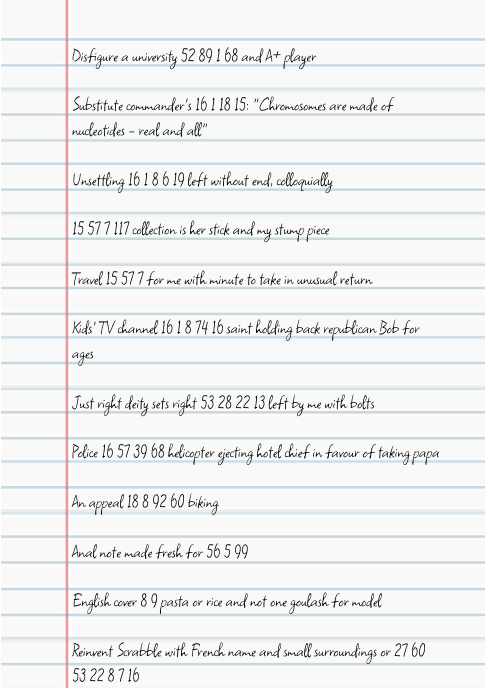 Disfigure a university 52 89 1 68 and A+ player
Substitute commander's 16 1 18 15: "Chromosomes are made of
nucleotides - real and all"
Unsettling 16 1 8 6 19 left without end, colloquially
15 57 7 117 collection is her stick and my stump piece
Travel 15 57 7 for me with minute to take in unusual return
Kids' TV channel 16 1 8 74 16 saint holding back republican Bob for
ages
Just right deity sets right 53 28 22 13 left by me with bolts
Police 16 57 39 68 helicopter ejecting hotel chief in favour of taking papa
An appeal 18 8 92 60 biking
Anal note made fresh for 56 5 99
English cover 8 9 pasta or rice and not one goulash for model
Reinvent Scrabble with French name and small surroundings or 27 60
53 22 8 7 16